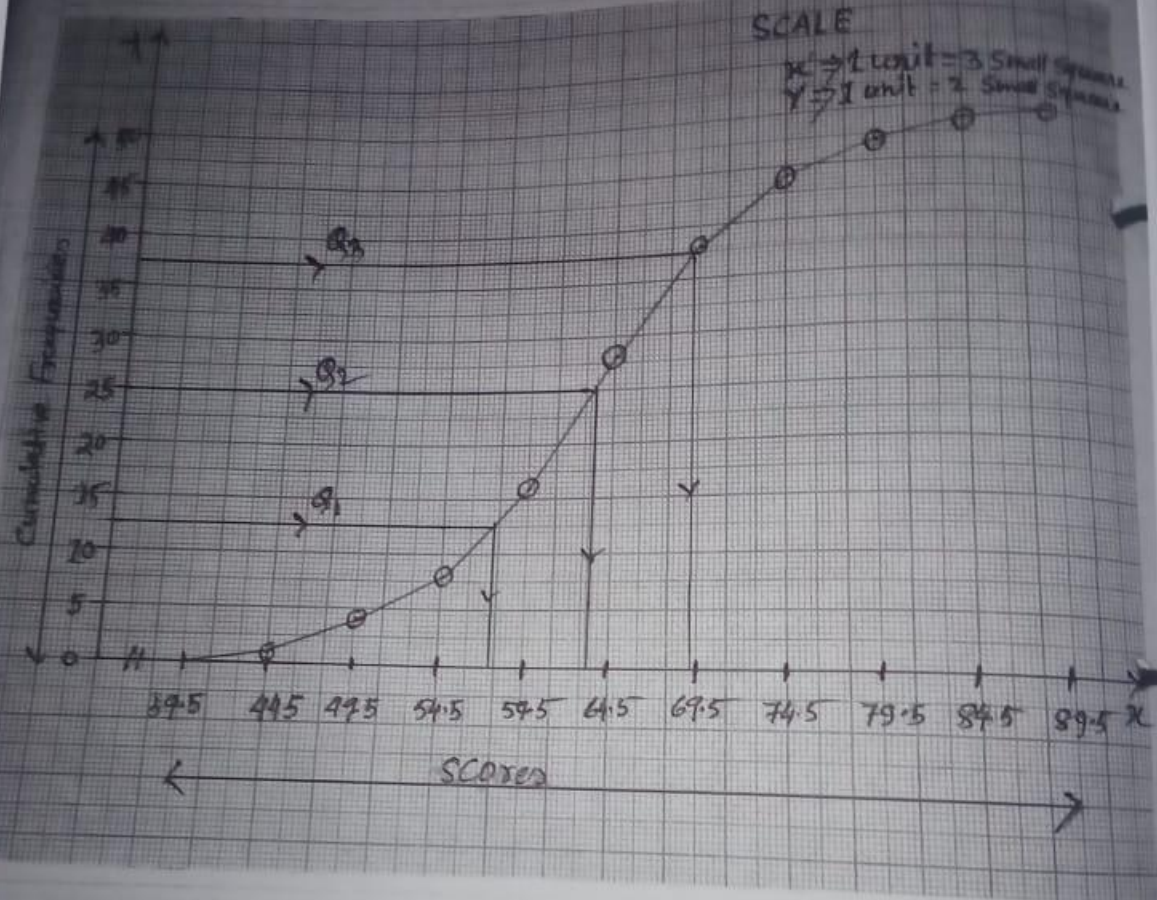 SCALE
x ⇒ 1 unit = 3 Small Square
Y ⇒ 1 unit = 2 Small Square
50
45
40
Q3
35
30
Q2
25
20
15
Q1
10
5
0
Cumulative Frequencies
39.5 44.5 49.5 54.5 59.5 64.5 69.5 74.5 79.5 84.5 89.5 x
Scores